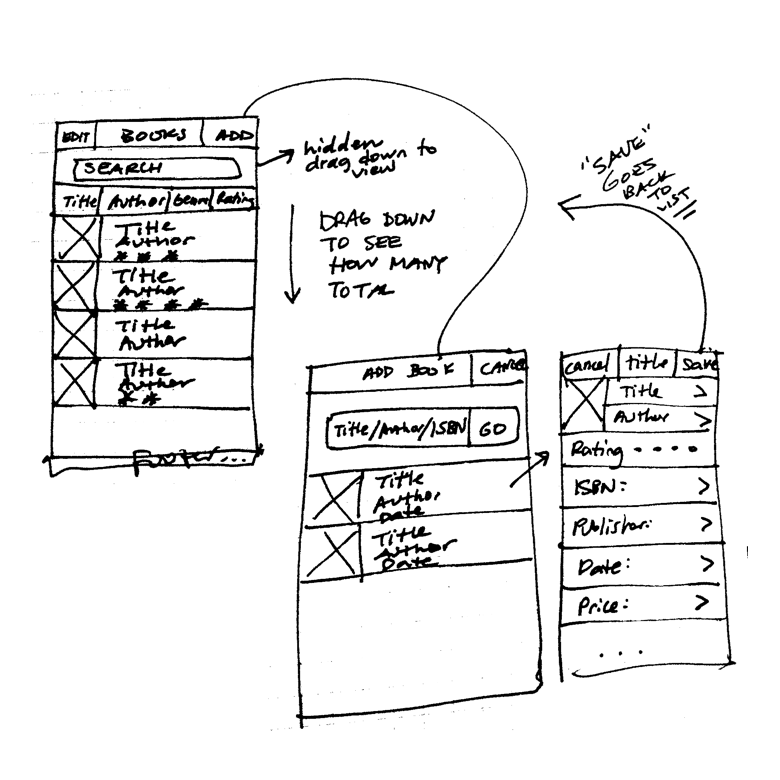 EDIT BOOKS ADD
SEARCH
Title Author Genre Rating
Title
Author
* * *
Title
Author
* * * *
Title
Author
Title
Author
* *
hidden
drag down to
view
DRAG DOWN
TO SEE
HOW MANY
TOTAL
"SAVE"
GOES
BACK
TO
LIST
ADD BOOK CANCEL
Title/Author/ISBN GO
Title
Author
Date
Title
Author
Date
Cancel title Save
Title >
Author >
Rating • • • •
ISBN: >
Publisher: >
Date: >
Price: >
. . .